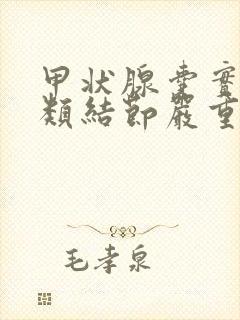 甲状腺囊實
類結節嚴重
毛孝泉